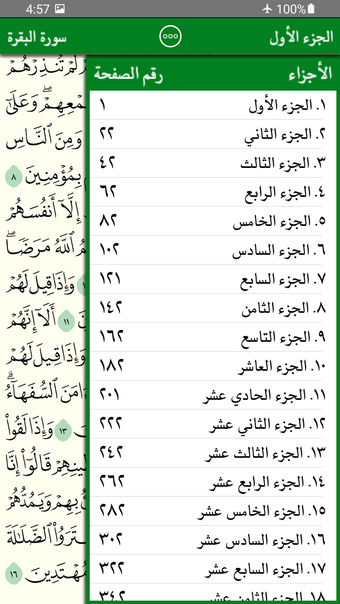 4:57 100%
الجزء الأول سورة البقرة
الأجزاء رقم الصفحة
١. الجزء الأول ١
٢. الجزء الثاني ٢٢
٣. الجزء الثالث ٤٢
٤. الجزء الرابع ٦٢
٥. الجزء الخامس ٨٢
٦. الجزء السادس ١٠٢
٧. الجزء السابع ١٢١
٨. الجزء الثامن ١٤٢
٩. الجزء التاسع ١٦٢
١٠. الجزء العاشر ١٨٢
١١. الجزء الحادي عشر ٢٠١
١٢. الجزء الثاني عشر ٢٢٢
١٣. الجزء الثالث عشر ٢٤٢
١٤. الجزء الرابع عشر ٢٦٢
١٥. الجزء الخامس عشر ٢٨٢
١٦. الجزء السادس عشر ٣٠٢
١٧. الجزء السابع عشر ٣٢٢
١٨. الجزء الثامن عشر ٣٤٢
لَمْ تُنذِرْهُمْ
وَعَلَىٰٓ
وَمِنَ ٱلنَّاسِ
بِمُؤْمِنِينَ ٨
إِلَّآ أَنفُسَهُمْ
ٱللَّهُ مَرَضٗاۖ
وَإِذَا قِيلَ لَهُمْ
١١ أَلَآ إِنَّهُمْ
وَإِذَا قِيلَ لَهُمْ
ءَامَنَ ٱلسُّفَهَآءُۗ
١٣ وَإِذَا لَقُواْ
قَالُوٓاْ إِنَّا
بِهِمْ وَيَمُدُّهُمْ
ٱشْتَرَوُاْ ٱلضَّلَٰلَةَ
مُهْتَدِينَ ١٦